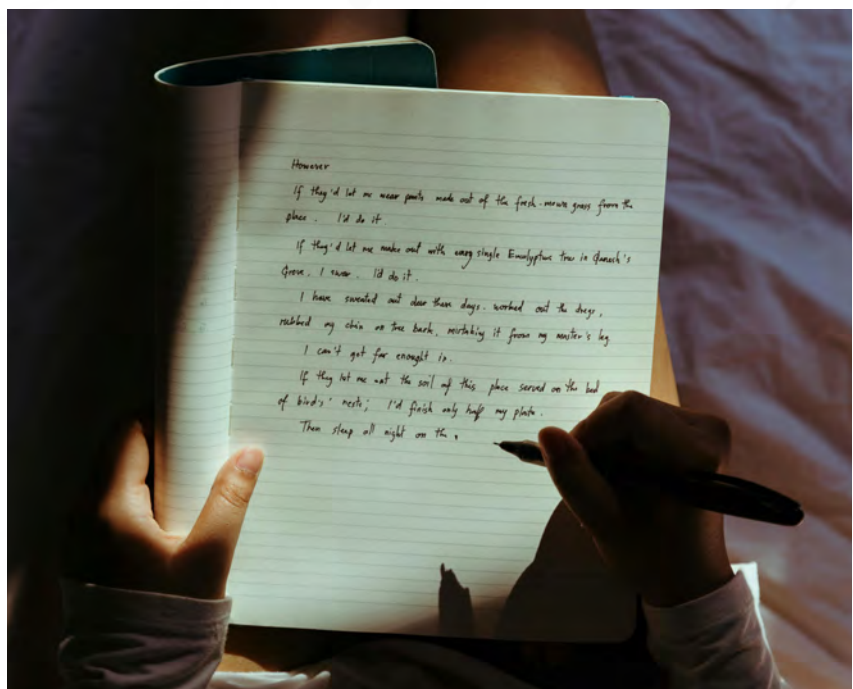 However
If they'd let me wear pants made out of the fresh-manure grass from the
place. I'd do it.
If they'd let me make out with every single Eucalyptus tree in Ganesh's
Grove, I swear. I'd do it.
I have sweated out dew these days. worked out the dregs,
rubbed my chin on tree bark, mistaking it from my master's leg
I can't get far enought in.
If they let me eat the soil of this place served on the bed
of bird's' nests; I'd finish only half my plate.
Then sleep all night on the